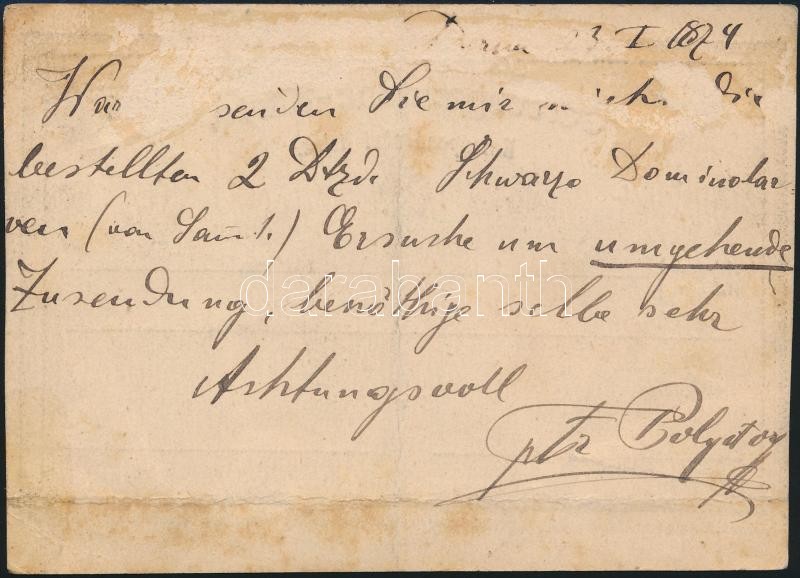 23. I 1874
senden Sie mir nicht die
bestellten 2 Dtzd. Schwarze Dominolar
ven (von Samt.) Ersuche um umgehende
Zusendung, benöthige selbe sehr
Achtungsvoll
darabanth